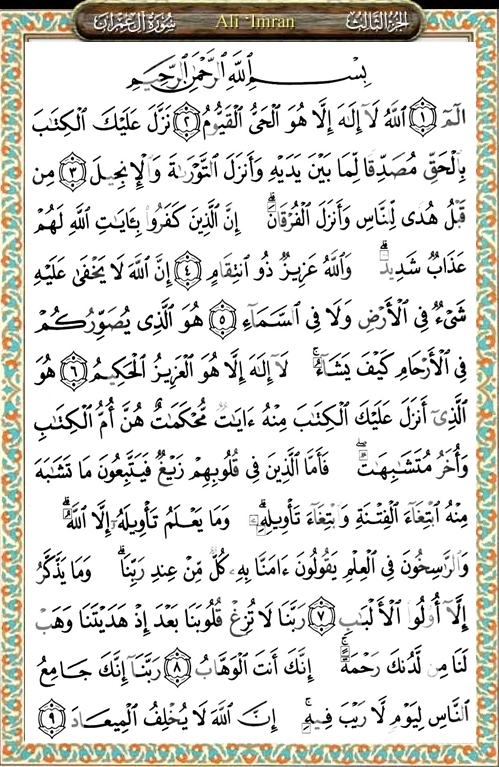 سُورَةُ آلِ عِمْرَان Ali 'Imran الجُزءُ الثَّالِثُ
بِسْمِ اللَّهِ الرَّحْمَٰنِ الرَّحِيمِ
الٓمٓ ١ ٱللَّهُ لَآ إِلَٰهَ إِلَّا هُوَ ٱلْحَىُّ ٱلْقَيُّومُ ٢ نَزَّلَ عَلَيْكَ ٱلْكِتَٰبَ
بِٱلْحَقِّ مُصَدِّقًا لِّمَا بَيْنَ يَدَيْهِ وَأَنزَلَ ٱلتَّوْرَىٰةَ وَٱلْإِنجِيلَ ٣ مِن
قَبْلُ هُدًى لِّلنَّاسِ وَأَنزَلَ ٱلْفُرْقَانَ ۗ إِنَّ ٱلَّذِينَ كَفَرُوا۟ بِـَٔايَٰتِ ٱللَّهِ لَهُمْ
عَذَابٌ شَدِيدٌ ۗ وَٱللَّهُ عَزِيزٌ ذُو ٱنتِقَامٍ ٤ إِنَّ ٱللَّهَ لَا يَخْفَىٰ عَلَيْهِ
شَىْءٌ فِى ٱلْأَرْضِ وَلَا فِى ٱلسَّمَآءِ ٥ هُوَ ٱلَّذِى يُصَوِّرُكُمْ
فِى ٱلْأَرْحَامِ كَيْفَ يَشَآءُ ۚ لَآ إِلَٰهَ إِلَّا هُوَ ٱلْعَزِيزُ ٱلْحَكِيمُ ٦ هُوَ
ٱلَّذِىٓ أَنزَلَ عَلَيْكَ ٱلْكِتَٰبَ مِنْهُ ءَايَٰتٌ مُّحْكَمَٰتٌ هُنَّ أُمُّ ٱلْكِتَٰبِ
وَأُخَرُ مُتَشَٰبِهَٰتٌ ۖ فَأَمَّا ٱلَّذِينَ فِى قُلُوبِهِمْ زَيْغٌ فَيَتَّبِعُونَ مَا تَشَٰبَهَ
مِنْهُ ٱبْتِغَآءَ ٱلْفِتْنَةِ وَٱبْتِغَآءَ تَأْوِيلِهِۦ ۗ وَمَا يَعْلَمُ تَأْوِيلَهُۥٓ إِلَّا ٱللَّهُ ۗ
وَٱلرَّٰسِخُونَ فِى ٱلْعِلْمِ يَقُولُونَ ءَامَنَّا بِهِۦ كُلٌّ مِّنْ عِندِ رَبِّنَا ۗ وَمَا يَذَّكَّرُ
إِلَّآ أُو۟لُوا۟ ٱلْأَلْبَٰبِ ٧ رَبَّنَا لَا تُزِغْ قُلُوبَنَا بَعْدَ إِذْ هَدَيْتَنَا وَهَبْ
لَنَا مِن لَّدُنكَ رَحْمَةً ۚ إِنَّكَ أَنتَ ٱلْوَهَّابُ ٨ رَبَّنَآ إِنَّكَ جَامِعُ
ٱلنَّاسِ لِيَوْمٍ لَّا رَيْبَ فِيهِ ۚ إِنَّ ٱللَّهَ لَا يُخْلِفُ ٱلْمِيعَادَ ٩